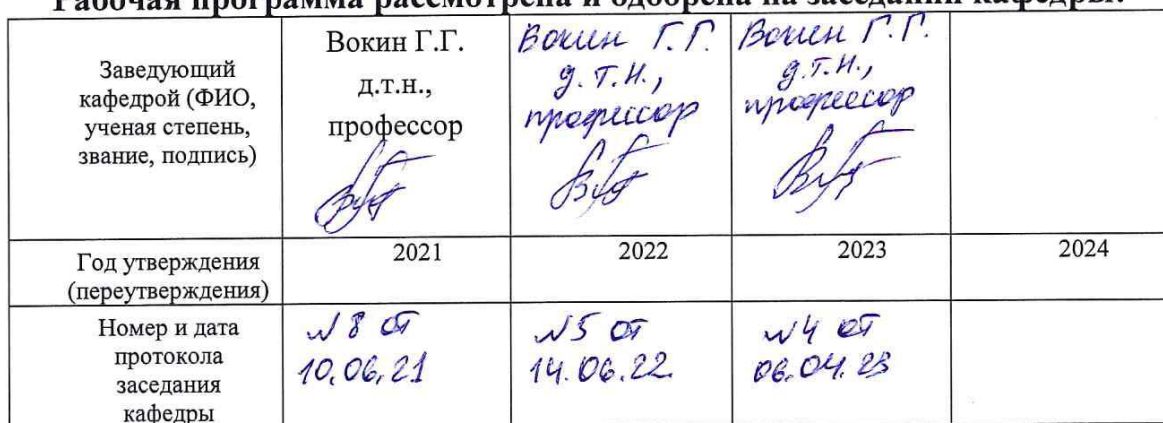 Рабочая программа рассмотрена и одобрена на заседании кафедры:
Заведующий
кафедрой (ФИО,
ученая степень,
звание, подпись)
Вокин Г.Г.
д.т.н.,
профессор
Вокин Г.Г.
д.т.н.,
профессор
Вокин Г.Г.
д.т.н.,
профессор
Год утверждения
(переутверждения)
2021
2022
2023
2024
Номер и дата
протокола
заседания
кафедры
№8 от
10.06.21
№5 от
14.06.22.
№4 от
06.04.23